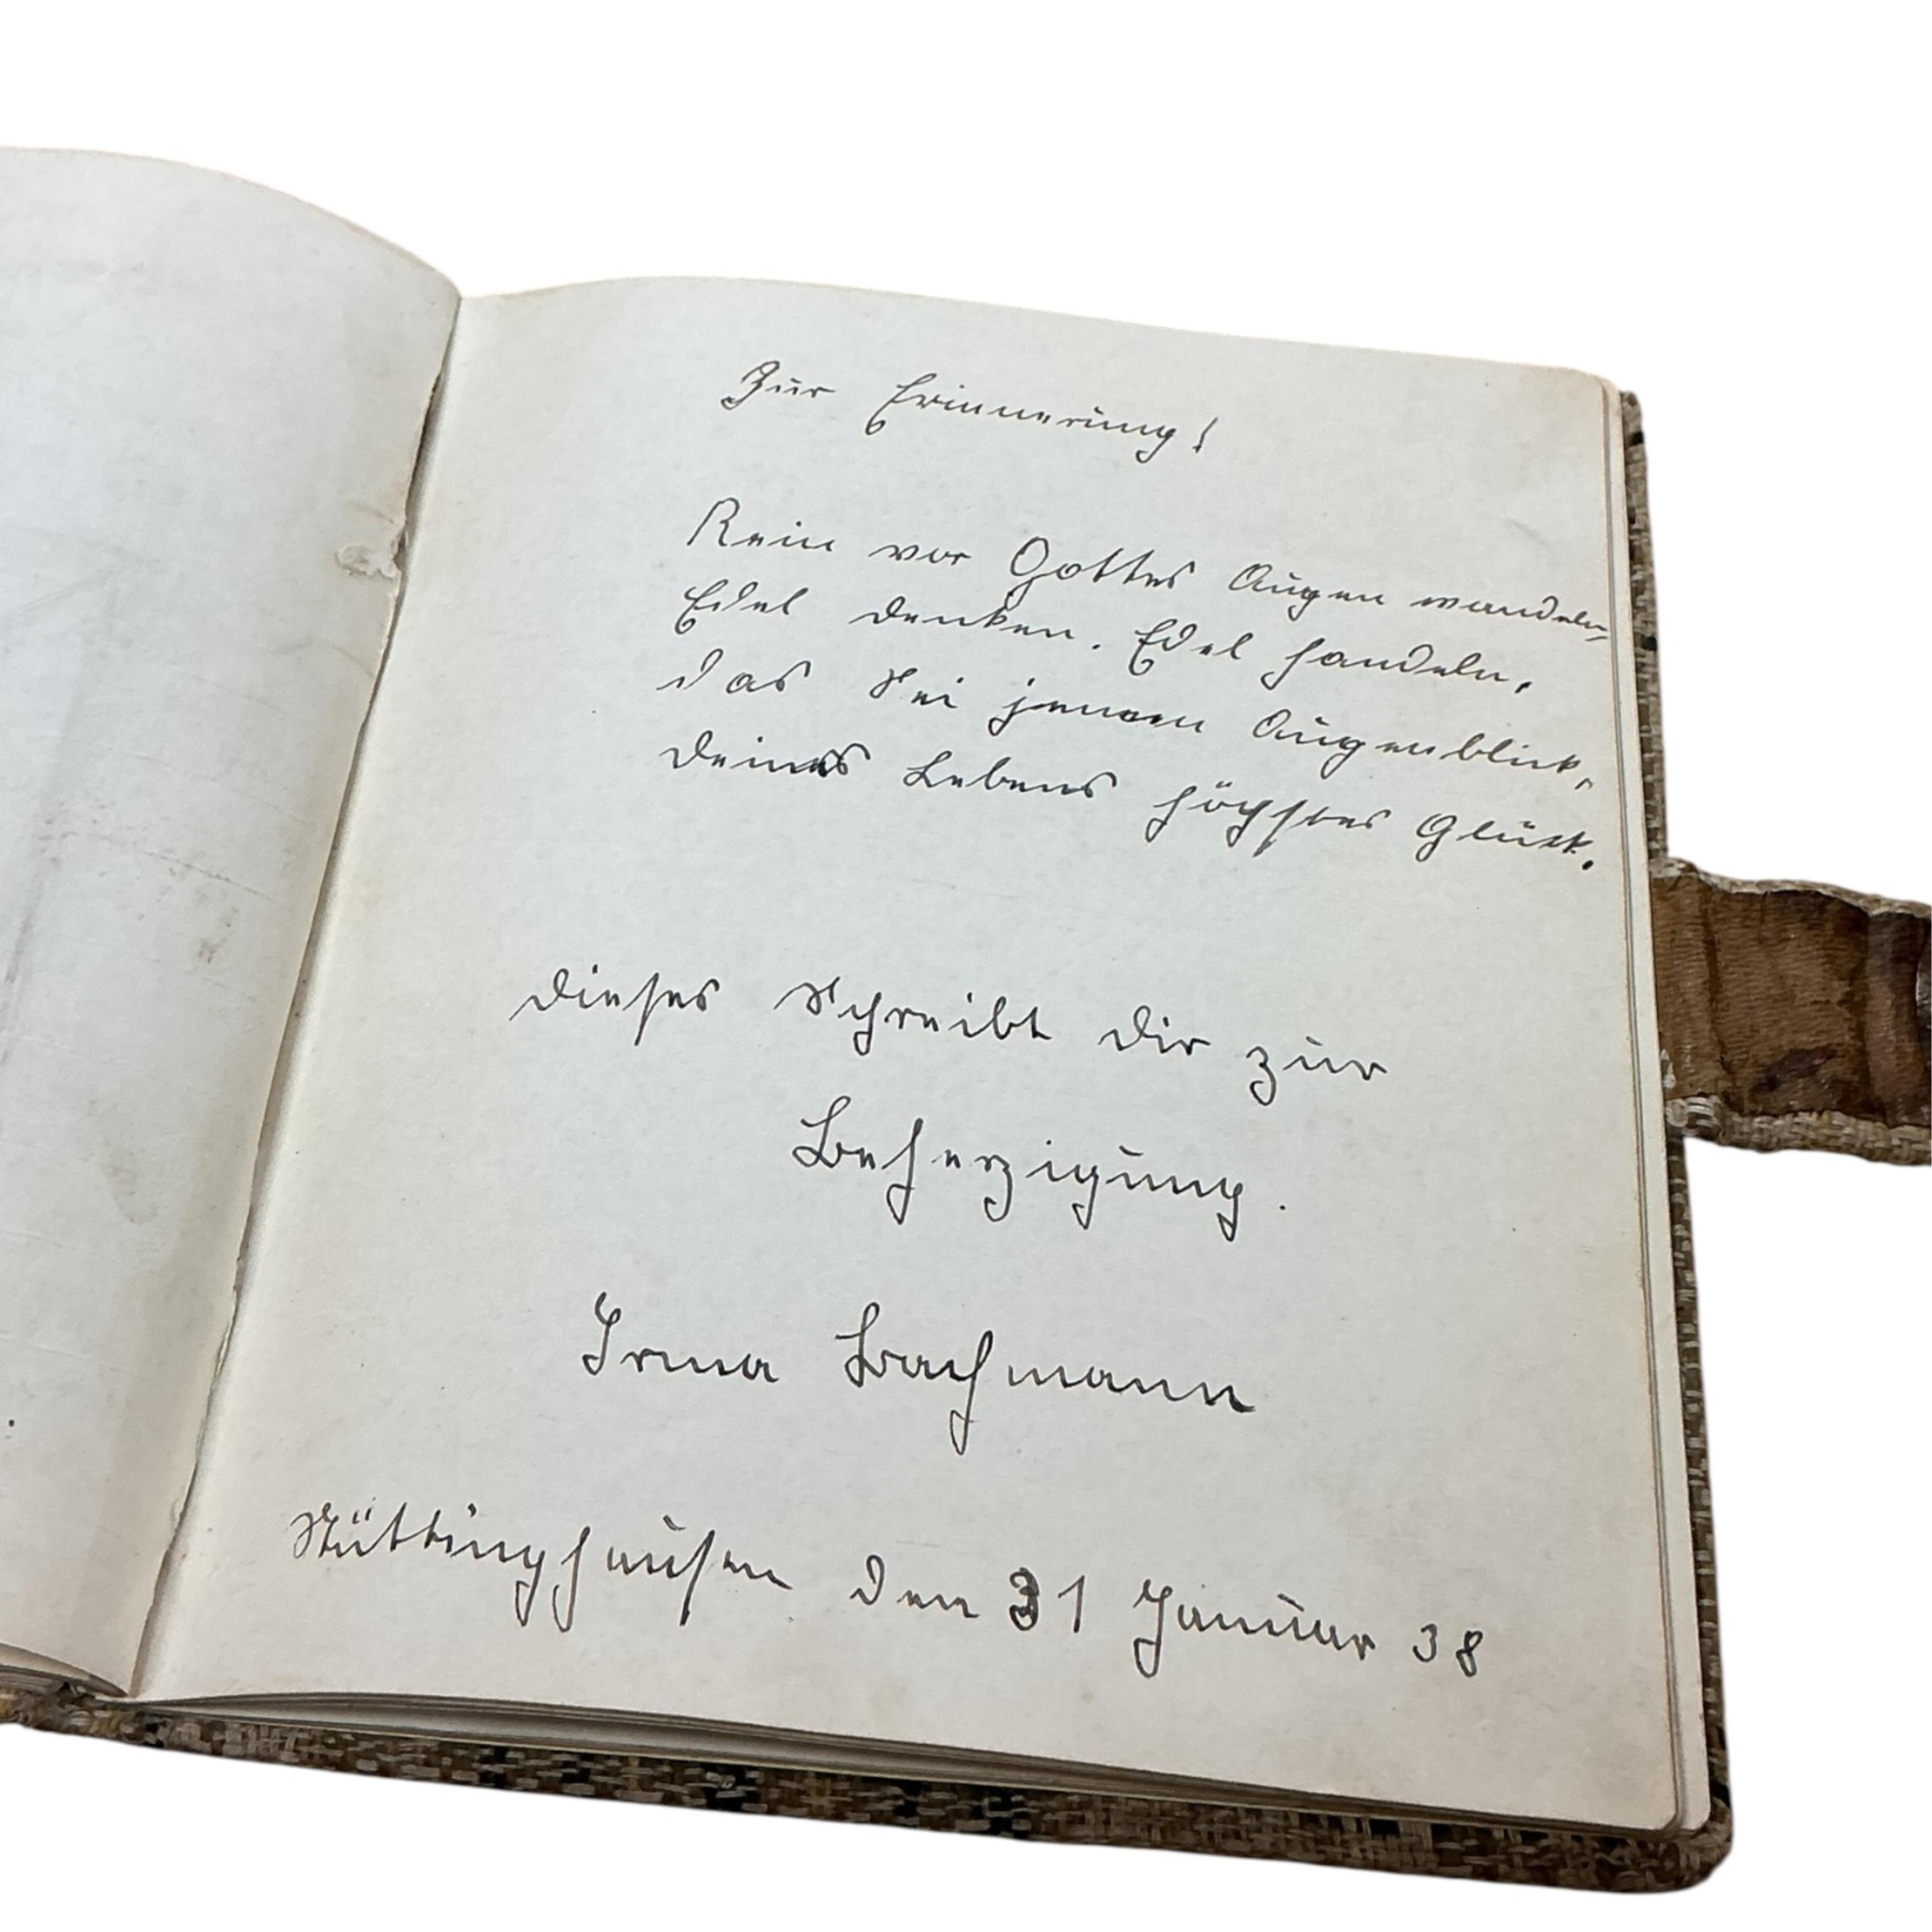 Zur Erinnerung!
Rein vor Gottes Augen wandeln,
Edel denken. Edel handeln,
das Sei jenen Augenblick,
deines Lebens höchstes Glück.
dieses Schreibt dir zur
Beherzigung.
Irma Bachmann
Stüttinghausen den 31 Januar 38